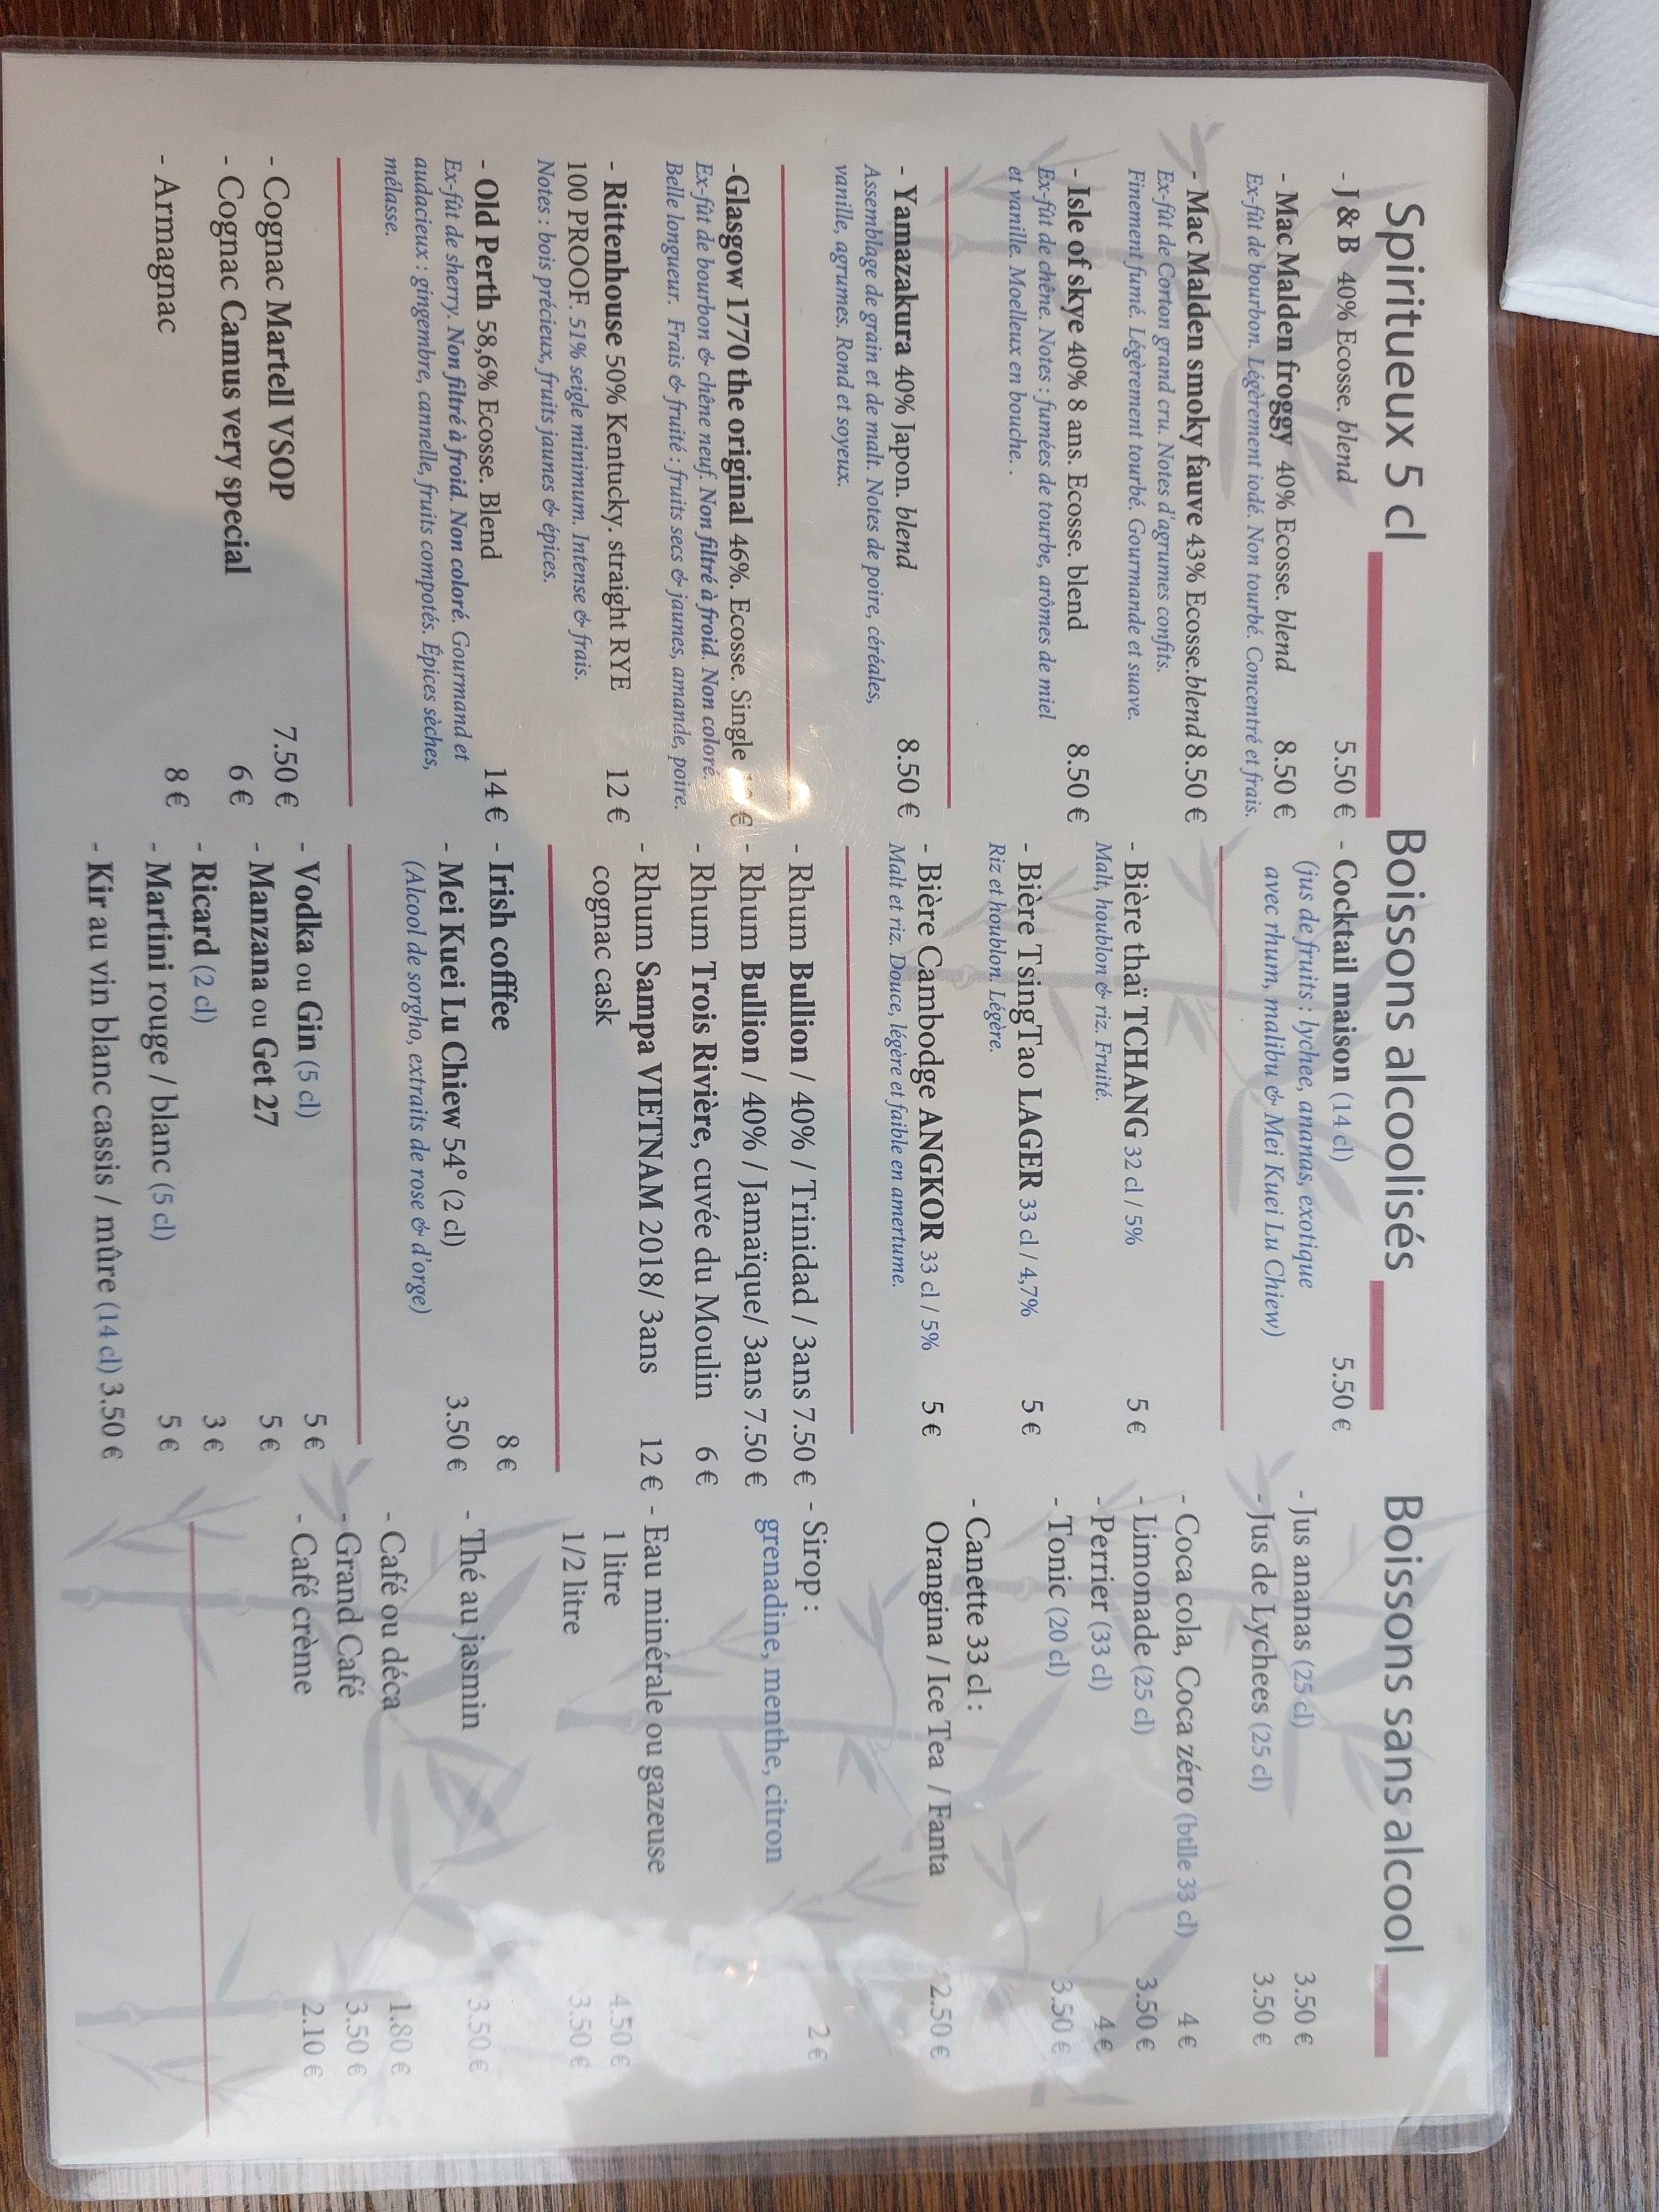 Spiritueux 5 cl
- J & B 40% Ecosse. blend 5.50 €
- Mac Malden froggy 40% Ecosse. blend 8.50 €
Ex-fût de bourbon. Légèrement iodé. Non tourbé. Concentré et frais.
- Mac Malden smoky fauve 43% Ecosse.blend 8.50 €
Ex-fût de Corton grand cru. Notes d'agrumes confits.
Finement fumé. Légèrement tourbé. Gourmande et suave.
- Isle of skye 40% 8 ans. Ecosse. blend 8.50 €
Ex-fût de chêne. Notes : fumées de tourbe, arômes de miel
et vanille. Moelleux en bouche. .
- Yamazakura 40% Japon. blend 8.50 €
Assemblage de grain et de malt. Notes de poire, céréales,
vanille, agrumes. Rond et soyeux.
-Glasgow 1770 the original 46%. Ecosse. Single €
Ex-fût de bourbon & chêne neuf. Non filtré à froid. Non coloré.
Belle longueur. Frais & fruité : fruits secs & jaunes, amande, poire.
- Rittenhouse 50% Kentucky. straight RYE 12 €
100 PROOF. 51% seigle minimum. Intense & frais.
Notes : bois précieux, fruits jaunes & épices.
- Old Perth 58,6% Ecosse. Blend 14 €
Ex-fût de sherry. Non filtré à froid. Non coloré. Gourmand et
audacieux : gingembre, cannelle, fruits compotés. Épices sèches,
mélasse.
- Cognac Martell VSOP 7.50 €
- Cognac Camus very special 6 €
- Armagnac 8 €
Boissons alcoolisés
- Cocktail maison (14 cl) 5.50 €
(jus de fruits : lychee, ananas, exotique
avec rhum, malibu & Mei Kuei Lu Chiew)
- Bière thaï TCHANG 32 cl / 5% 5 €
Malt, houblon & riz. Fruité.
- Bière TsingTao LAGER 33 cl / 4,7% 5 €
Riz et houblon. Légère.
- Bière Cambodge ANGKOR 33 cl / 5% 5 €
Malt et riz. Douce, légère et faible en amertume.
- Rhum Bullion / 40% / Trinidad / 3ans 7.50 €
- Rhum Bullion / 40% / Jamaïque/ 3ans 7.50 €
- Rhum Trois Rivière, cuvée du Moulin 6 €
- Rhum Sampa VIETNAM 2018/ 3ans 12 €
cognac cask
- Irish cofffee 8 €
- Mei Kuei Lu Chiew 54° (2 cl) 3.50 €
(Alcool de sorgho, extraits de rose & d'orge)
- Vodka ou Gin (5 cl) 5 €
- Manzana ou Get 27 5 €
- Ricard (2 cl) 3 €
- Martini rouge / blanc (5 cl) 5 €
- Kir au vin blanc cassis / mûre (14 cl) 3.50 €
Boissons sans alcool
- Jus ananas (25 cl) 3.50 €
- Jus de Lychees (25 cl) 3.50 €
- Coca cola, Coca zéro (btlle 33 cl) 4 €
- Limonade (25 cl) 3.50 €
- Perrier (33 cl) 4 €
- Tonic (20 cl) 3.50 €
- Canette 33 cl :
Orangina / Ice Tea / Fanta 2.50 €
- Sirop : 2 €
grenadine, menthe, citron
- Eau minérale ou gazeuse
1 litre 4.50 €
1/2 litre 3.50 €
- Thé au jasmin 3.50 €
- Café ou déca 1.80 €
- Grand Café 3.50 €
- Café crème 2.10 €